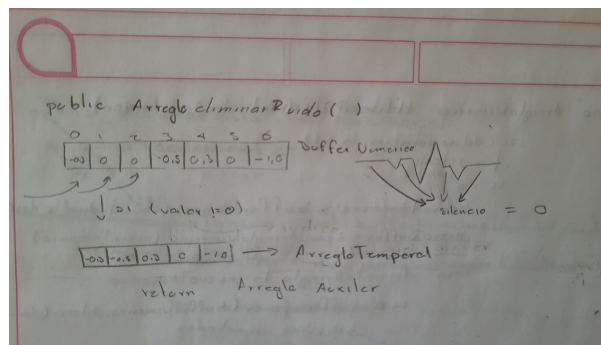 public Arreglo eliminarRuido( )
0 1 2 3 4 5 6
-0.3 0 0 -0.5 0.3 0 -1.0 Buffer Numerico
si (valor != 0) silencio = 0
-0.3 -0.5 0.3 0 -1.0 → ArregloTemporal
return Arreglo Auxiler